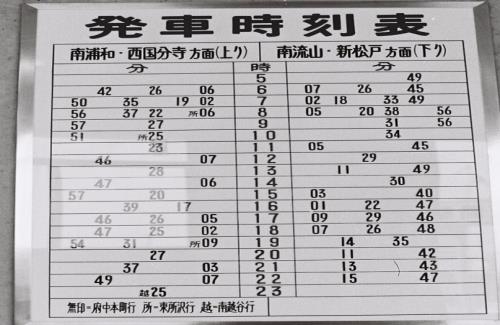 発車時刻表
南浦和・西国分寺方面(上り) 南流山・新松戸方面(下り)
分 時 分
5 49
42 26 06 6 07 26 45
50 35 19 02 7 02 18 33 49
56 37 22 所06 8 05 20 38 56
57 27 9 31 56
51 所25 10 34
23 11 05 45
46 07 12 29
28 13 11 49
47 06 14 30
57 20 15 03 40
39 17 16 01 22 47
46 26 05 17 09 29 46
47 25 02 18 07 26 48
54 31 所09 19 14 35
27 20 11 42
37 03 21 13 43
49 07 22 15 47
越25 23
無印=府中本町行 所=東所沢行 越=南越谷行